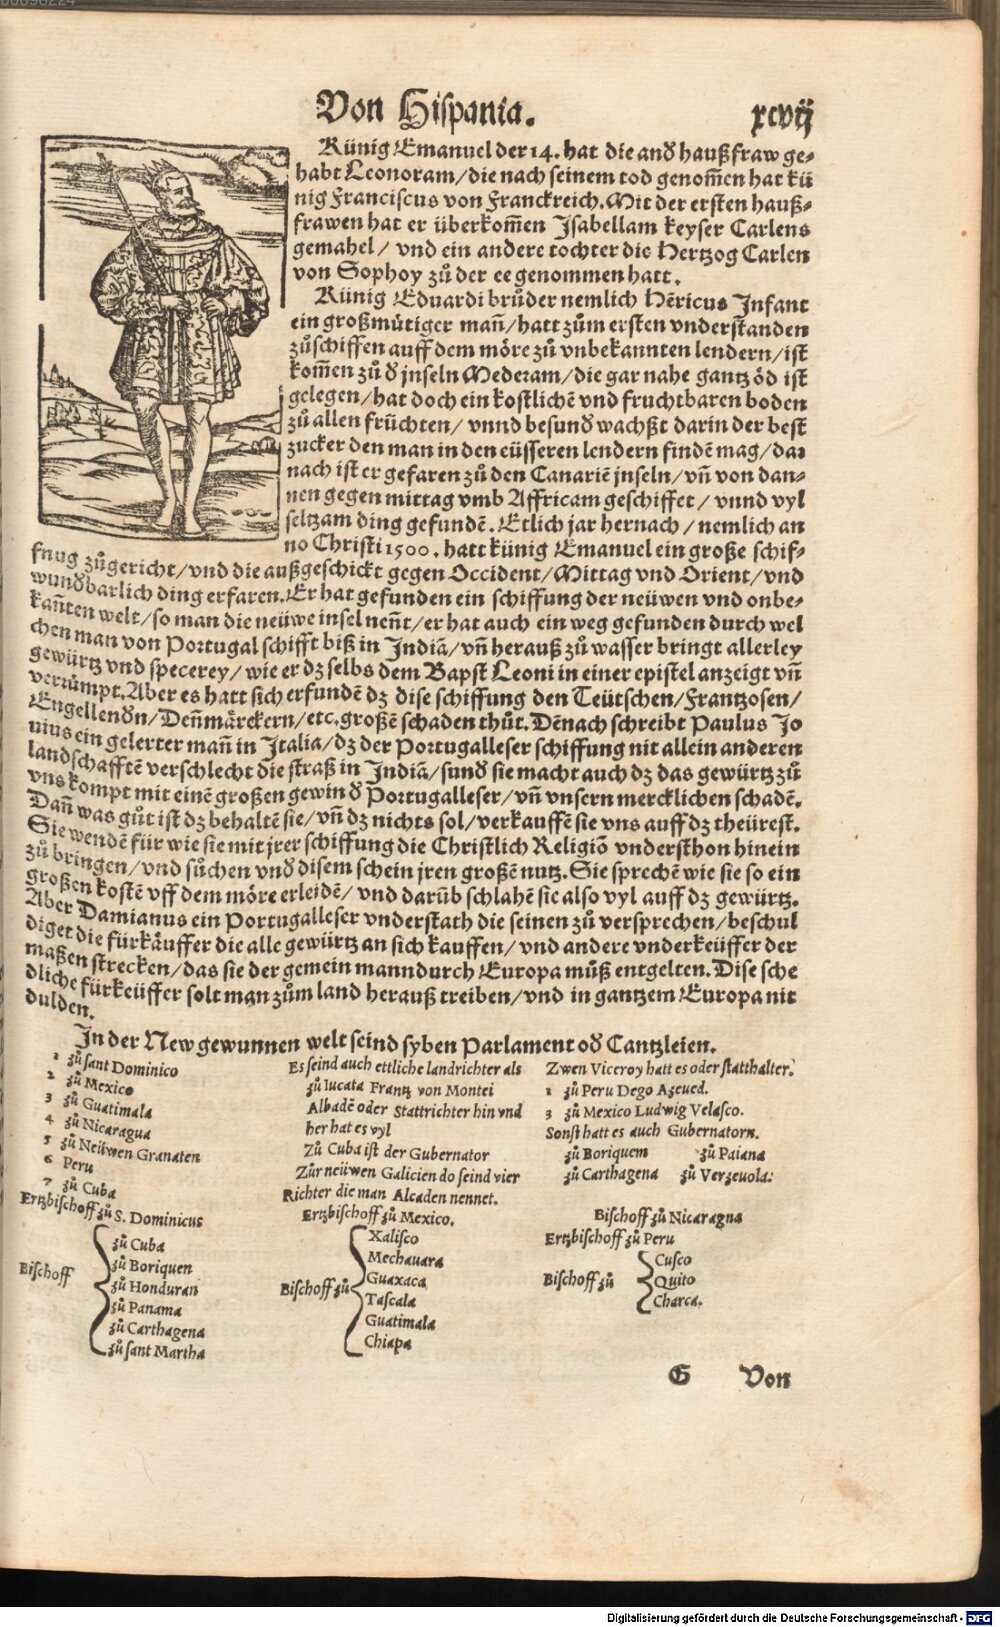 Von Hispania. xcvij
Künig Emanuel der 14. hat die and haußfraw ge-
habt Leonoram/die nach seinem tod genom̄en hat kü
nig Franciscus von Franckreich. Mit der ersten hauß-
frawen hat er überkom̄en Isabellam keyser Carlens
gemahel/ vnd ein andere tochter die Hertzog Carlen
von Sophoy zů der ee genommen hatt.
Künig Eduardi brůder nemlich Hēricus Infant
ein großmütiger man̄/hatt zům ersten vnderstanden
zůschiffen auff dem möre zů vnbekannten lendern/ist
kom̄en zů d̄ jnseln Mederam/die gar nahe gantz öd ist
gelegen/hat doch ein kostlichē vnd fruchtbaren boden
zů allen früchten/ vnnd besund̄ wachßt darin der best
zucker den man in den eüsseren lendern findē mag/dar
nach ist er gefaren zů den Canariē jnseln/vn̄ von dan-
nen gegen mittag vmb Affricam geschiffet/ vnnd vyl
seltzam ding gefundē. Etlich jar hernach/ nemlich an
no Christi 1500. hatt künig Emanuel ein große schif-
fnug zůgericht/vnd die außgeschickt gegen Occident/Mittag vnd Orient/vnd
wund̄barlich ding erfaren. Er hat gefunden ein schiffung der neüwen vnd onbe-
kan̄ten welt/so man die neüwe insel nen̄t/er hat auch ein weg gefunden durch wel
chen man von Portugal schifft biß in Indiā/vn̄ herauß zů wasser bringt allerley
gewürtz vnd specerey/wie er dz selbs dem Bapst Leoni in einer epistel anzeigt vn̄
verrümpt. Aber es hatt sich erfundē dz dise schiffung den Teütschen/Frantzosen/
Engellendn̄/Den̄märckern/etc. großē schaden thůt. Dēnach schreibt Paulus Jo
nius ein gelerter man̄ in Italia/dz der Portugalleser schiffung nit allein anderen
landschafftē verschlecht die straß in Indiā/sund̄ sie macht auch dz das gewürtz zů
vns kompt mit einē großen gewin d̄ Portugalleser/vn̄ vnsern mercklichen schadē.
Dan̄ was gůt ist dz behaltē sie/vn̄ dz nichts sol/verkauffē sie vns auff dz theürest.
Sie wendē für wie sie mit jrer schiffung die Christlich Religiō vndersthon hinein
zů bringen/vnd sůchen vnd̄ disem schein jren großē nutz. Sie sprechē wie sie so ein
großen kostē vff dem möre erleidē/ vnd darūb schlahē sie also vyl auff dz gewürtz.
Aber Damianus ein Portugalleser vnderstath die seinen zů versprechen/beschul
diget die fürkäuffer die alle gewürtz an sich kauffen/vnd andere vnderkeüffer der
maßen strecken/das sie der gemein manndurch Europa můß entgelten. Dise sche
dliche fürkeüffer solt man zům land herauß treiben/vnd in gantzem Europa nit
dulden.
In der New gewunnen welt seind syben Parlament od̄ Cantzleien.
1 zů sant Dominico
2 zů Mexico
3 zů Guatimala
4 zů Nicaragua
5 zů Neüwen Granaten
6 Peru
7 zů Cuba
Ertzbischoff zů S. Dominicus
Bischoff
zů Cuba
zů Boriquen
zů Honduran
zů Panama
zů Carthagena
zů sant Martha
Es seind auch ettliche landrichter als
zů Iucata Frantz von Montei
Albadē oder Stattrichter hin vnd
her hat es vyl
Zů Cuba ist der Gubernator
Zůr neüwen Galicien do seind vier
Richter die man Alcaden nennet.
Ertzbischoff zů Mexico.
Bischoff zů
Xalisco
Mechauara
Guaxaca
Tascala
Guatimala
Chiapa
Zwen Viceroy hatt es oder statthalter.
1 zů Peru Dego Azeued.
3 zů Mexico Ludwig Velasco.
Sonst hatt es auch Gubernatorn.
zů Boriquem zů Paiana
zů Carthagena zů Verzeuola.
Bischoff zů Nicaragna
Ertzbischoff zů Peru
Bischoff zů
Cusco
Quito
Charca.
G Von
Digitalisierung gefördert durch die Deutsche Forschungsgemeinschaft - DFG